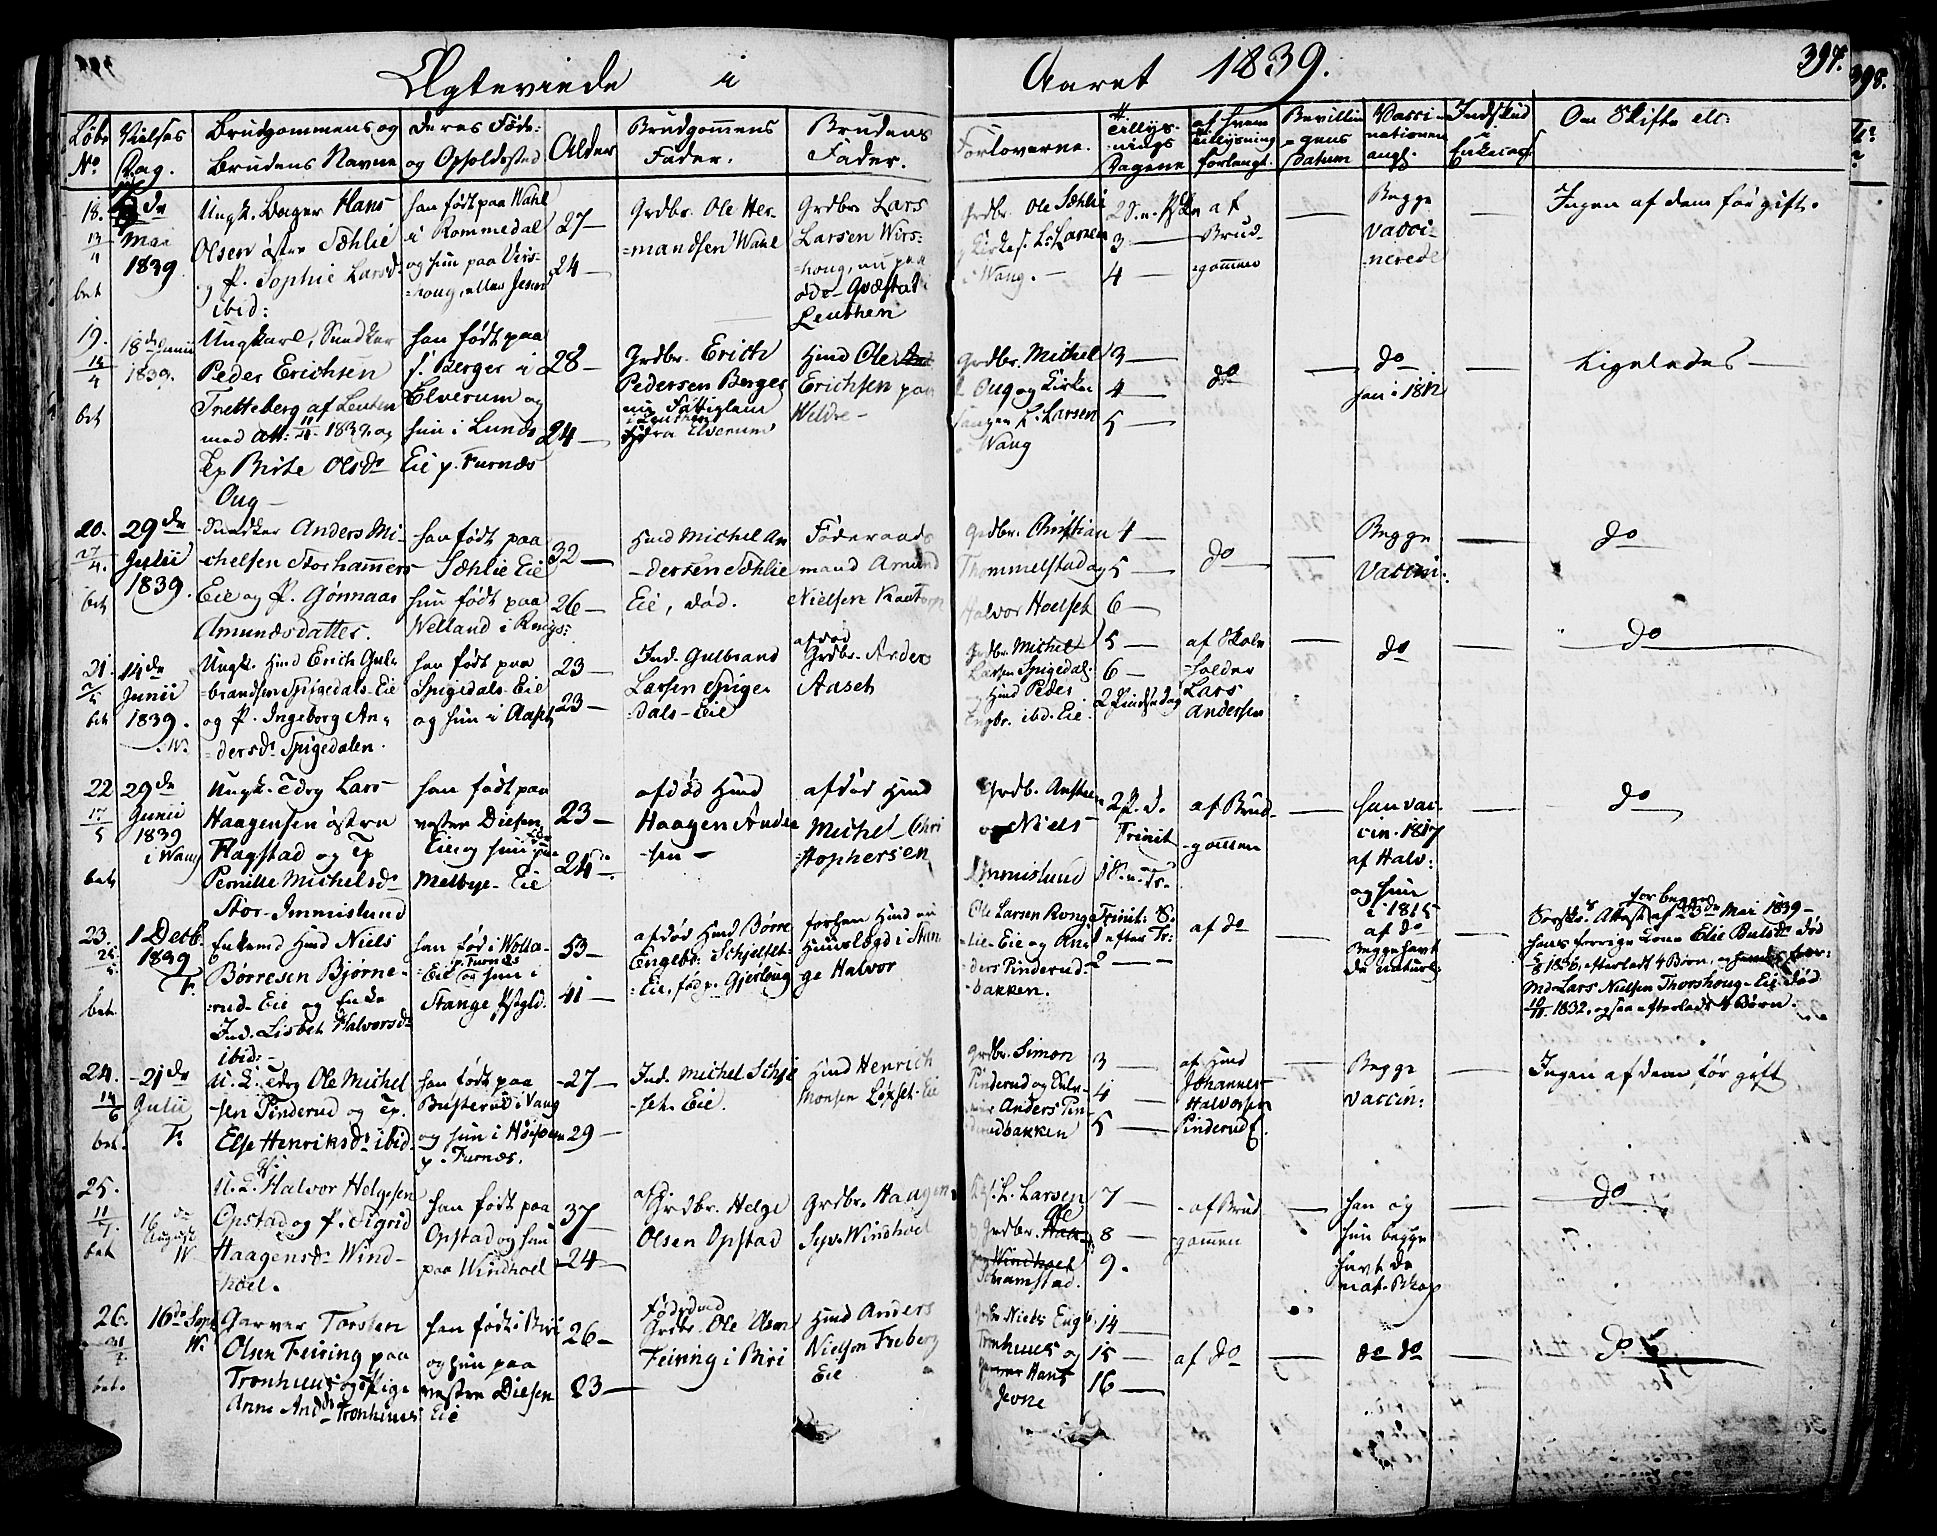 Ægteviede i Aaret 1839. 397.
398.
Løbe No. Vielses Dag. Brudgommens og Brudens Navne Deres Føde- og Opholdssted Alder Brudgommens Fader. Brudens Fader. Forloverne. Tillysnings Dagene af hvem Tillysning forlangt. Bevillingens datum Vaccinationen angl. Indskud i Enkecas. Om Skifte etc.
18.
Mai
1839
bet
Ungk. Hans
Olsen østre Sæhlie
og P. Sophie Larsd.
ibid:
han født paa Wahl
i Rommedal
og hun paa Virs-
houg, eller
27 —
24 —
Grdbr. Ole Her-
mandsen Wahl
Grdbr. Lars
Larsen Wirs-
houg, nu paa
øde-Græstad i
Leuthen
Grdbr. Ole Sæhlie
og Kirkes. L. Larsen
i Wang. —
3 —
4 —
af
Brud-
gommen
Begge
vacci-
nerede
Ingen af dem før gift.
19.
14/4
bet
18de Junii
1839.
Ungkarl, Snedker
Peder Erichsen
Tretteberg af Leuten
med Att: 1839 og
Tp Birte Olsdr
Oug —
han født paa
s. Berger i
Elverum og
hun i Lunds
Eie p. Furnæs
28 —
24 —
Grdbr. Erich
Pedersen Berger
nu Fattiglem
i Leuthen
fra Elverum
Hmd Ole
Erichsen paa
Wildre —
Grdbr. Michel
Oug og Kirke
sanger L. Larsen
Wang
3 —
4 —
5 —
do
do
han i 1812
Ligeledes —
20.
27/4.
bet
29de
Julii
1839.
Snedker Anders Mi-
chelsen Storhamers
Eie og P. Gønnaas
Amundsdatter.
han født paa
Sæhlie Eie
hun født paa
Welland i Rings:
32 —
26 —
Hmd Michel An
dersen Sæhlie
Eie, død.
Føderaads
mand Amund
Nielsen
Grdbr. Christian
Thommelstad og
Halvor Hoelset
4 —
5 —
6 —
do
Begge
Vaccin:
do
21.
bet
14de
Junii
1839.
W.
Ungk. Hmd Erich Gul-
brandsen Spigedals-Eie
og P. Ingeborg An-
dersdr Spigedalen.
han født paa
Spigedals-Eie
og hun i Aaset
23 —
23 —
Ind. Gulbrand
Larsen Spige-
dals-Eie
afdød
Grdbr. Ander
Aaset
Grdbr. Michel
Larsen Spigedal
og Hmd Peder
Engbr. ibd. Eie
5 —
6 —
2 Pindsedag
af Skole-
holder
Lars
Andersen
do
do
22
17/5
bet
29de
Junii
1839
i Wang
Ungk. Tdrg Lars
Haagensen østre
Flagstad og Tp
Pernille Michelsdr
Stor-Immislund
han født paa
vestre Diesen
Eie og hun
Melbye-Eie
23 —
24 —
afdød Hmd
Haagen Ander
sen —
afdød Hmd
Michel Chri
stophersen
Grdb.
og Niels
Immislund
Trinit
af Brud-
gommen
han vac-
cin. 1817
af Halv:
og hun
i 1815
af do
do
23.
25/5
bet.
1 Octb.
1839
F.
Enkemd Hmd Niels
Børresen Bjørne-
rud-Eie og Enke
Ind. Lisbet Halvorsdr
ibid: —
han fød i Wolla-
Eie p. Furnæs og hun i
Stange Præstgld.
53 —
41 —
afdød Hmd Børre
Engebr. i Schjelset-
Eie, fød p. Gjørlaug
forhen Hmd nu
Huuslægd i Stan
ge Halvor
Ole Larsen Rong-
lie-Eie og An-
ders Pinderud-
bakken.
Trinit: S.
1 efter Tr:
2 — —
af do
Begge havt
de naturl:
for begge
Sorsk: Attest af 23de Mai 1839 —
hans forrige Kone Elie død
1836, efterladt 4 Børn,
Md Lars Nielsen Thorshoug-Eie død
1832, ogsaa efterladt 4 Børn.
24.
14/6
bet.
21de
Julii
F.
U.K. Tdrg Ole Michel
sen Pinderud og Tp.
Else Henriksdr ibid.
han født paa
Busterud i Vang
og hun i
p. Furnæs.
27 —
29 —
Ind. Michel Schje
set-Eie.
Hmd Henrich
Monsen Løpset-Eie
Grdbr. Simon
Pinderud og
Anders Pin-
derudbakken
3 —
4 —
5 —
af Hmd
Johannes
Halvorsen
Pinderud.
Begge
vaccin:
Ingen af dem før gift
25.
11/7.
bet
16de
August
W.
U.K. Halvor Helgesen
Opstad og P. Sigrid
Haagensdr Wind-
hoel.
han født paa
Opstad og hun
paa Windhoel
37 —
24 —
afd
Grdbr. Helge
Olsen Opstad
Grdbr. Haagen
Syv. Windhoel
Ks. L. Larsen
og Grdbr. Ole
Windhoel
Schramstad.
7 —
8 —
9.
af Brud
gommen
han og
hun begge
havt de
nat. Bkop
do
26.
bet.
16de Sept
W.
Garver Torsten
Olsen Feiring paa
Tronhuus og Pige
Anne Andd. Tronhuus
han født i Biri
og hun paa
vestre Diesen
Eie
26 —
23 —
Føderaad
Grdbr. Ole Olsen
Feiring i Biri
Hmd Anders
Nielsen Freberg
Eie
Grdbr Niels Engb.
Tronhuus og
Hans
Jevne
14 —
15 —
16 —
af do
do do
do